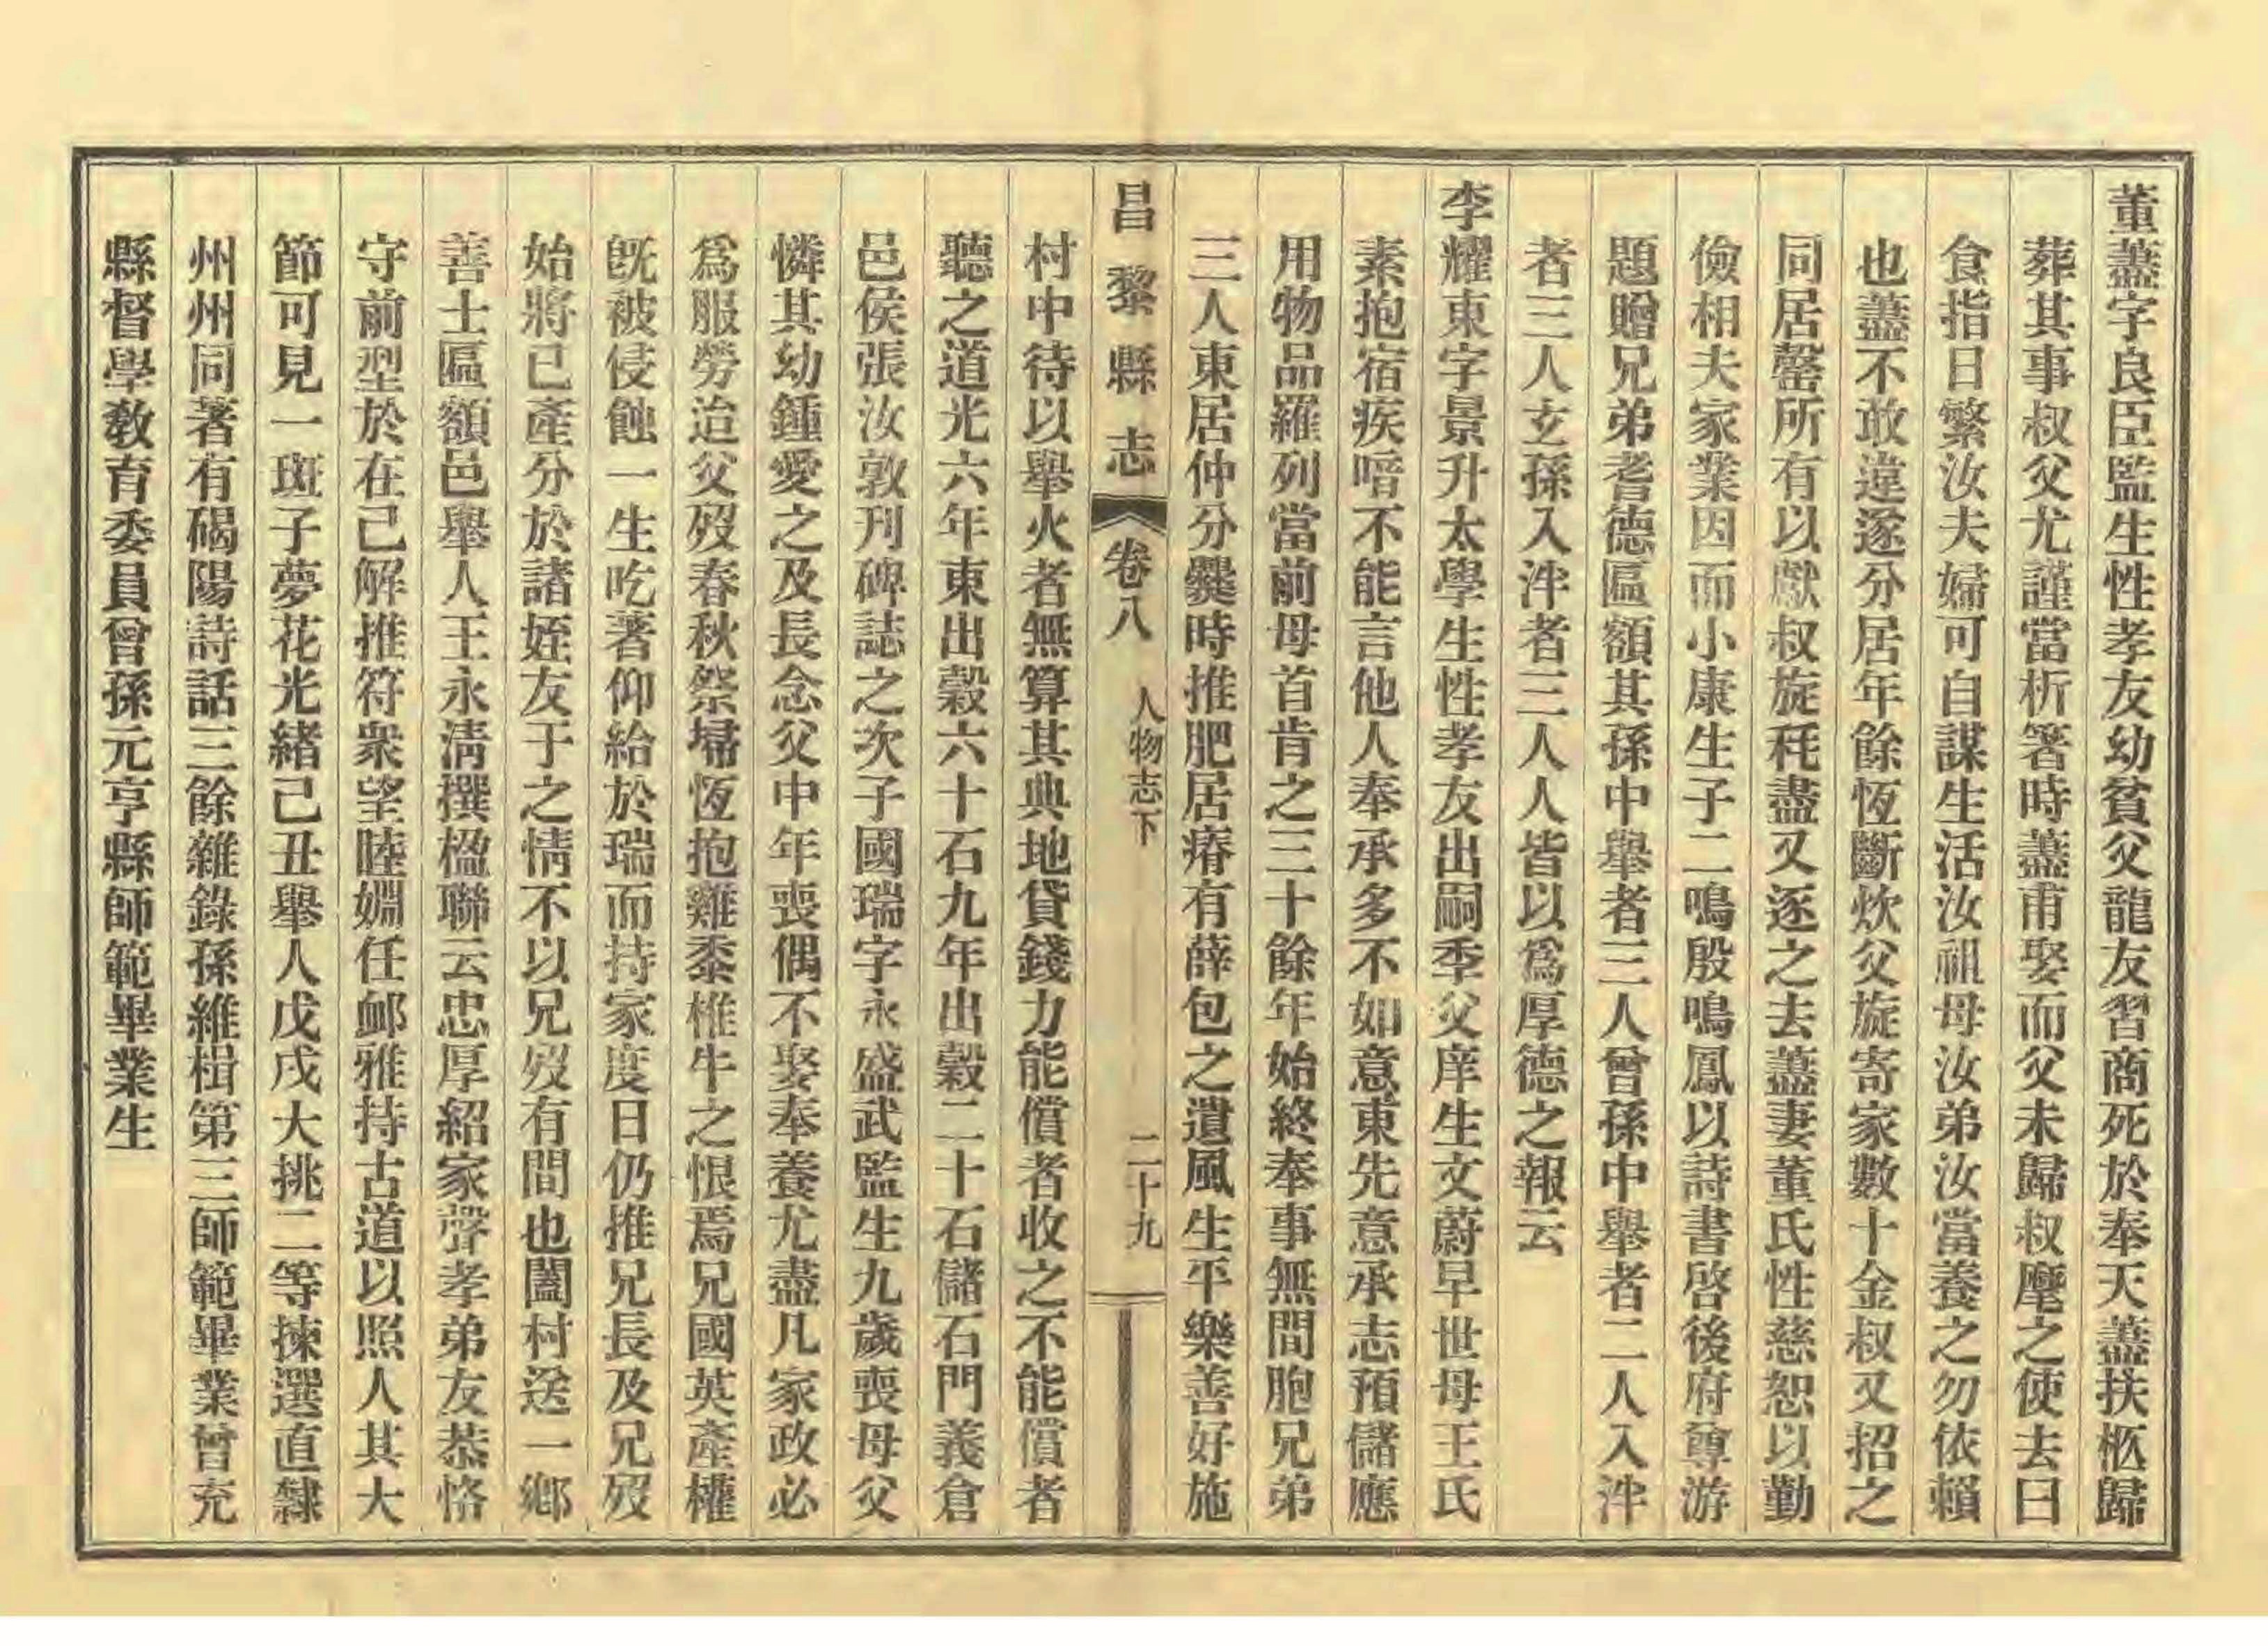 董藎字良臣監生性孝友幼貧父龍友習商死於奉天藎扶柩歸
葬其事叔父尤謹當析箸時藎甫娶而父未歸叔麾之使去曰
食指日繁汝夫婦可自謀生活汝祖母汝弟汝當養之勿依賴
也藎不敢違遂分居年餘恆斷炊父旋寄家數十金叔又招之
同居罄所有以獻叔旋秏盡又逐之去藎妻董氏性慈恕以勤
儉相夫家業因而小康生子二鳴殷鳴鳳以詩書啓後府尊游
題贈兄弟耆德匾額其孫中舉者三人曾孫中舉者二人入泮
者三人玄孫入泮者三人人皆以爲厚德之報云
李耀東字景升太學生性孝友出嗣季父庠生文蔚早世母王氏
素抱宿疾喑不能言他人奉承多不如意東先意承志預儲應
用物品羅列當前母首肯之三十餘年始終奉事無間胞兄弟
三人東居仲分爨時推肥居瘠有薛包之遺風生平樂善好施
昌黎縣志 卷八 人物志下 二十九
村中待以舉火者無算其典地貸錢力能償者收之不能償者
聽之道光六年東出穀六十石九年出穀二十石儲石門義倉
邑侯張汝敦刊碑誌之次子國瑞字永盛武監生九歲喪母父
憐其幼鍾愛之及長念父中年喪偶不娶奉養尤盡凡家政必
爲服勞迨父歿春秋祭埽恆抱雞黍椎牛之恨焉兄國英產權
旣被侵蝕一生吃著仰給於瑞而持家度日仍推兄長及兄歿
始將已產分於諸姪友于之情不以兄歿有間也闔村送一鄉
善士匾額邑舉人王永淸撰楹聯云忠厚紹家聲孝弟友恭恪
守前型於在己解推符衆望睦婣任卹雅持古道以照人其大
節可見一斑子夢花光緒己丑舉人戊戌大挑二等揀選直隸
州州同著有碣陽詩話三餘雜錄孫維楫第三師範畢業曾充
縣督學敎育委員曾孫元亨縣師範畢業生